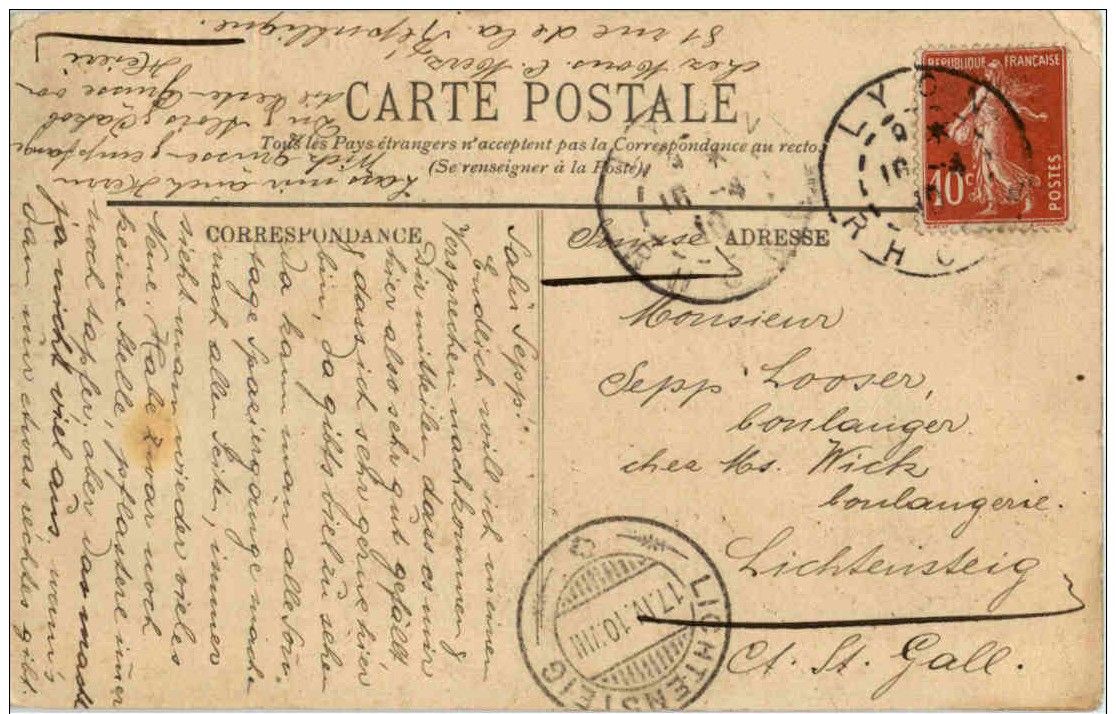 CARTE POSTALE
Tous les Pays étrangers n'acceptent pas la Correspondance au recto
(Se renseigner à la Poste)
CORRESPONDANCE
ADRESSE
RÉPUBLIQUE FRANÇAISE
10c
POSTES
LYON
RHONE
Suisse
Monsieur
Sepp Looser,
boulanger
chez Ms. Wick
boulangerie.
Lichtensteig
Ct. St. Gall.
LICHTENSTEIG
17.IV.10.VIII
Salü Sepp!
Endlich will ich meinen
Versprechen nachkommen &
Dir mitteilen dass es mir
hier also sehr gut gefällt
& dass ich sehr gerne hier
bin, da gibts viel zu sehen
da kann man alle Sonn,
tage Spaziergänge machen
nach allen Seiten, immer
sieht man wieder vieles
Neue. Habe zwar noch
keine Stelle, pflastere immer
noch tapfer, aber das macht
ja nicht viel aus, wenn's
dann nur etwas rechtes gibt.
Lass mir auch Herrn
Wick grüssen
Alois, Jakob
Beste Grüsse von
chez Mons. C. Merz
81 rue de la République.